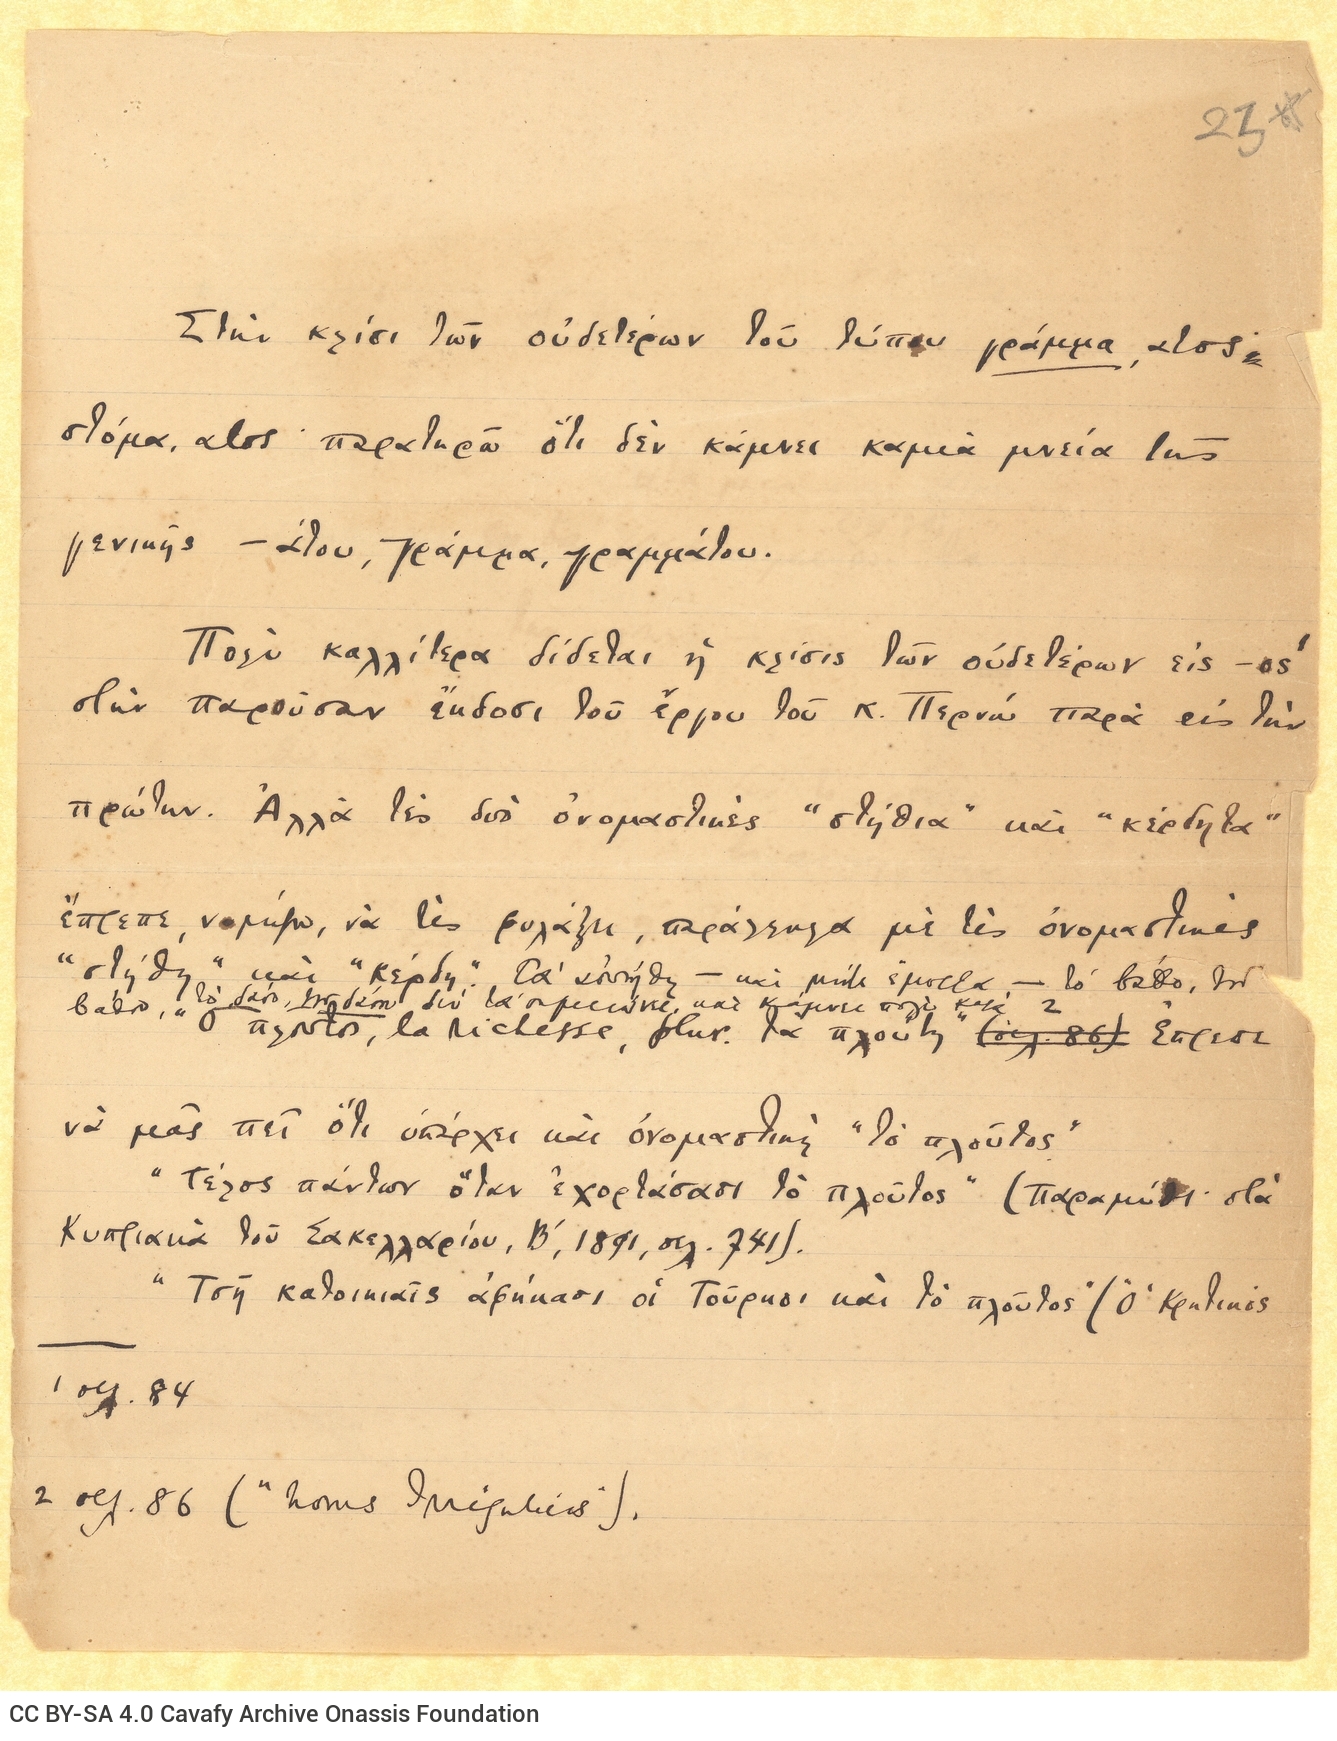 23
Στὴν κλίσι τῶν οὐδετέρων τοῦ τύπου γράμμα, ατος =
στόμα, ατος παρατηρῶ ὅτι δὲν κάμνει καμιὰ μνεία τῆς
γενικῆς – άτου, γράμμα, γραμμάτου.
Πολὺ καλλίτερα δίδεται ἡ κλίσις τῶν οὐδετέρων εἰς –ος 1
στὴν παροῦσαν ἔκδοσι τοῦ ἔργου τοῦ κ. Περνώ παρὰ εἰς τὴν
πρώτην. Ἀλλὰ τὲς δυὸ ὀνομαστικὲς "στήθια" καὶ "κέρδητα"
ἔπρεπε, νομίζω, νὰ τὲς φυλάξει, παράλληλα μὲ τὲς ὀνομαστικὲς
"στήθη" καὶ "κέρδη". Τὰ – καὶ – τὸ βάθο, τοῦ
βάθου, τὸ δάσο, τοῦ δάσου δὲν τὰ σημειώνει, καὶ κάμνει πολὺ καλά. 2
"Ὁ πλοῦτος, la richesse, plur. τὰ πλούτη" (σελ. 86) Ἔπρεπε
νὰ μᾶς πεῖ ὅτι ὑπάρχει καὶ ὀνομαστικὴ "τὸ πλοῦτος"
"Τέλος πάντων ὅταν ἐχορτάσασι τὸ πλοῦτος" (Παραμύθι στὰ
Κυπριακὰ τοῦ Σακελλαρίου, Β', 1891, σελ. 741).
"Τσῆ κατοικιαῖς ἀφήκασι οἱ Τοῦρκοι καὶ τὸ πλοῦτος" (Ὁ Κρητικὸς
1 σελ. 84
2 σελ. 86 ("Noms Irréguliers").
CC BY-SA 4.0 Cavafy Archive Onassis Foundation